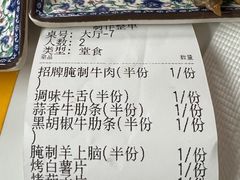 桌号:大厅-7
人数:2
类型:堂食
菜品 数量
招牌腌制牛肉(半份 1/份
)
调味牛舌(半份) 1/份
蒜香牛肋条(半份) 1/份
黑胡椒牛肋条(半份 1/份
)
腌制羊上脑(半份) 1/份
烤白薯片 1/份